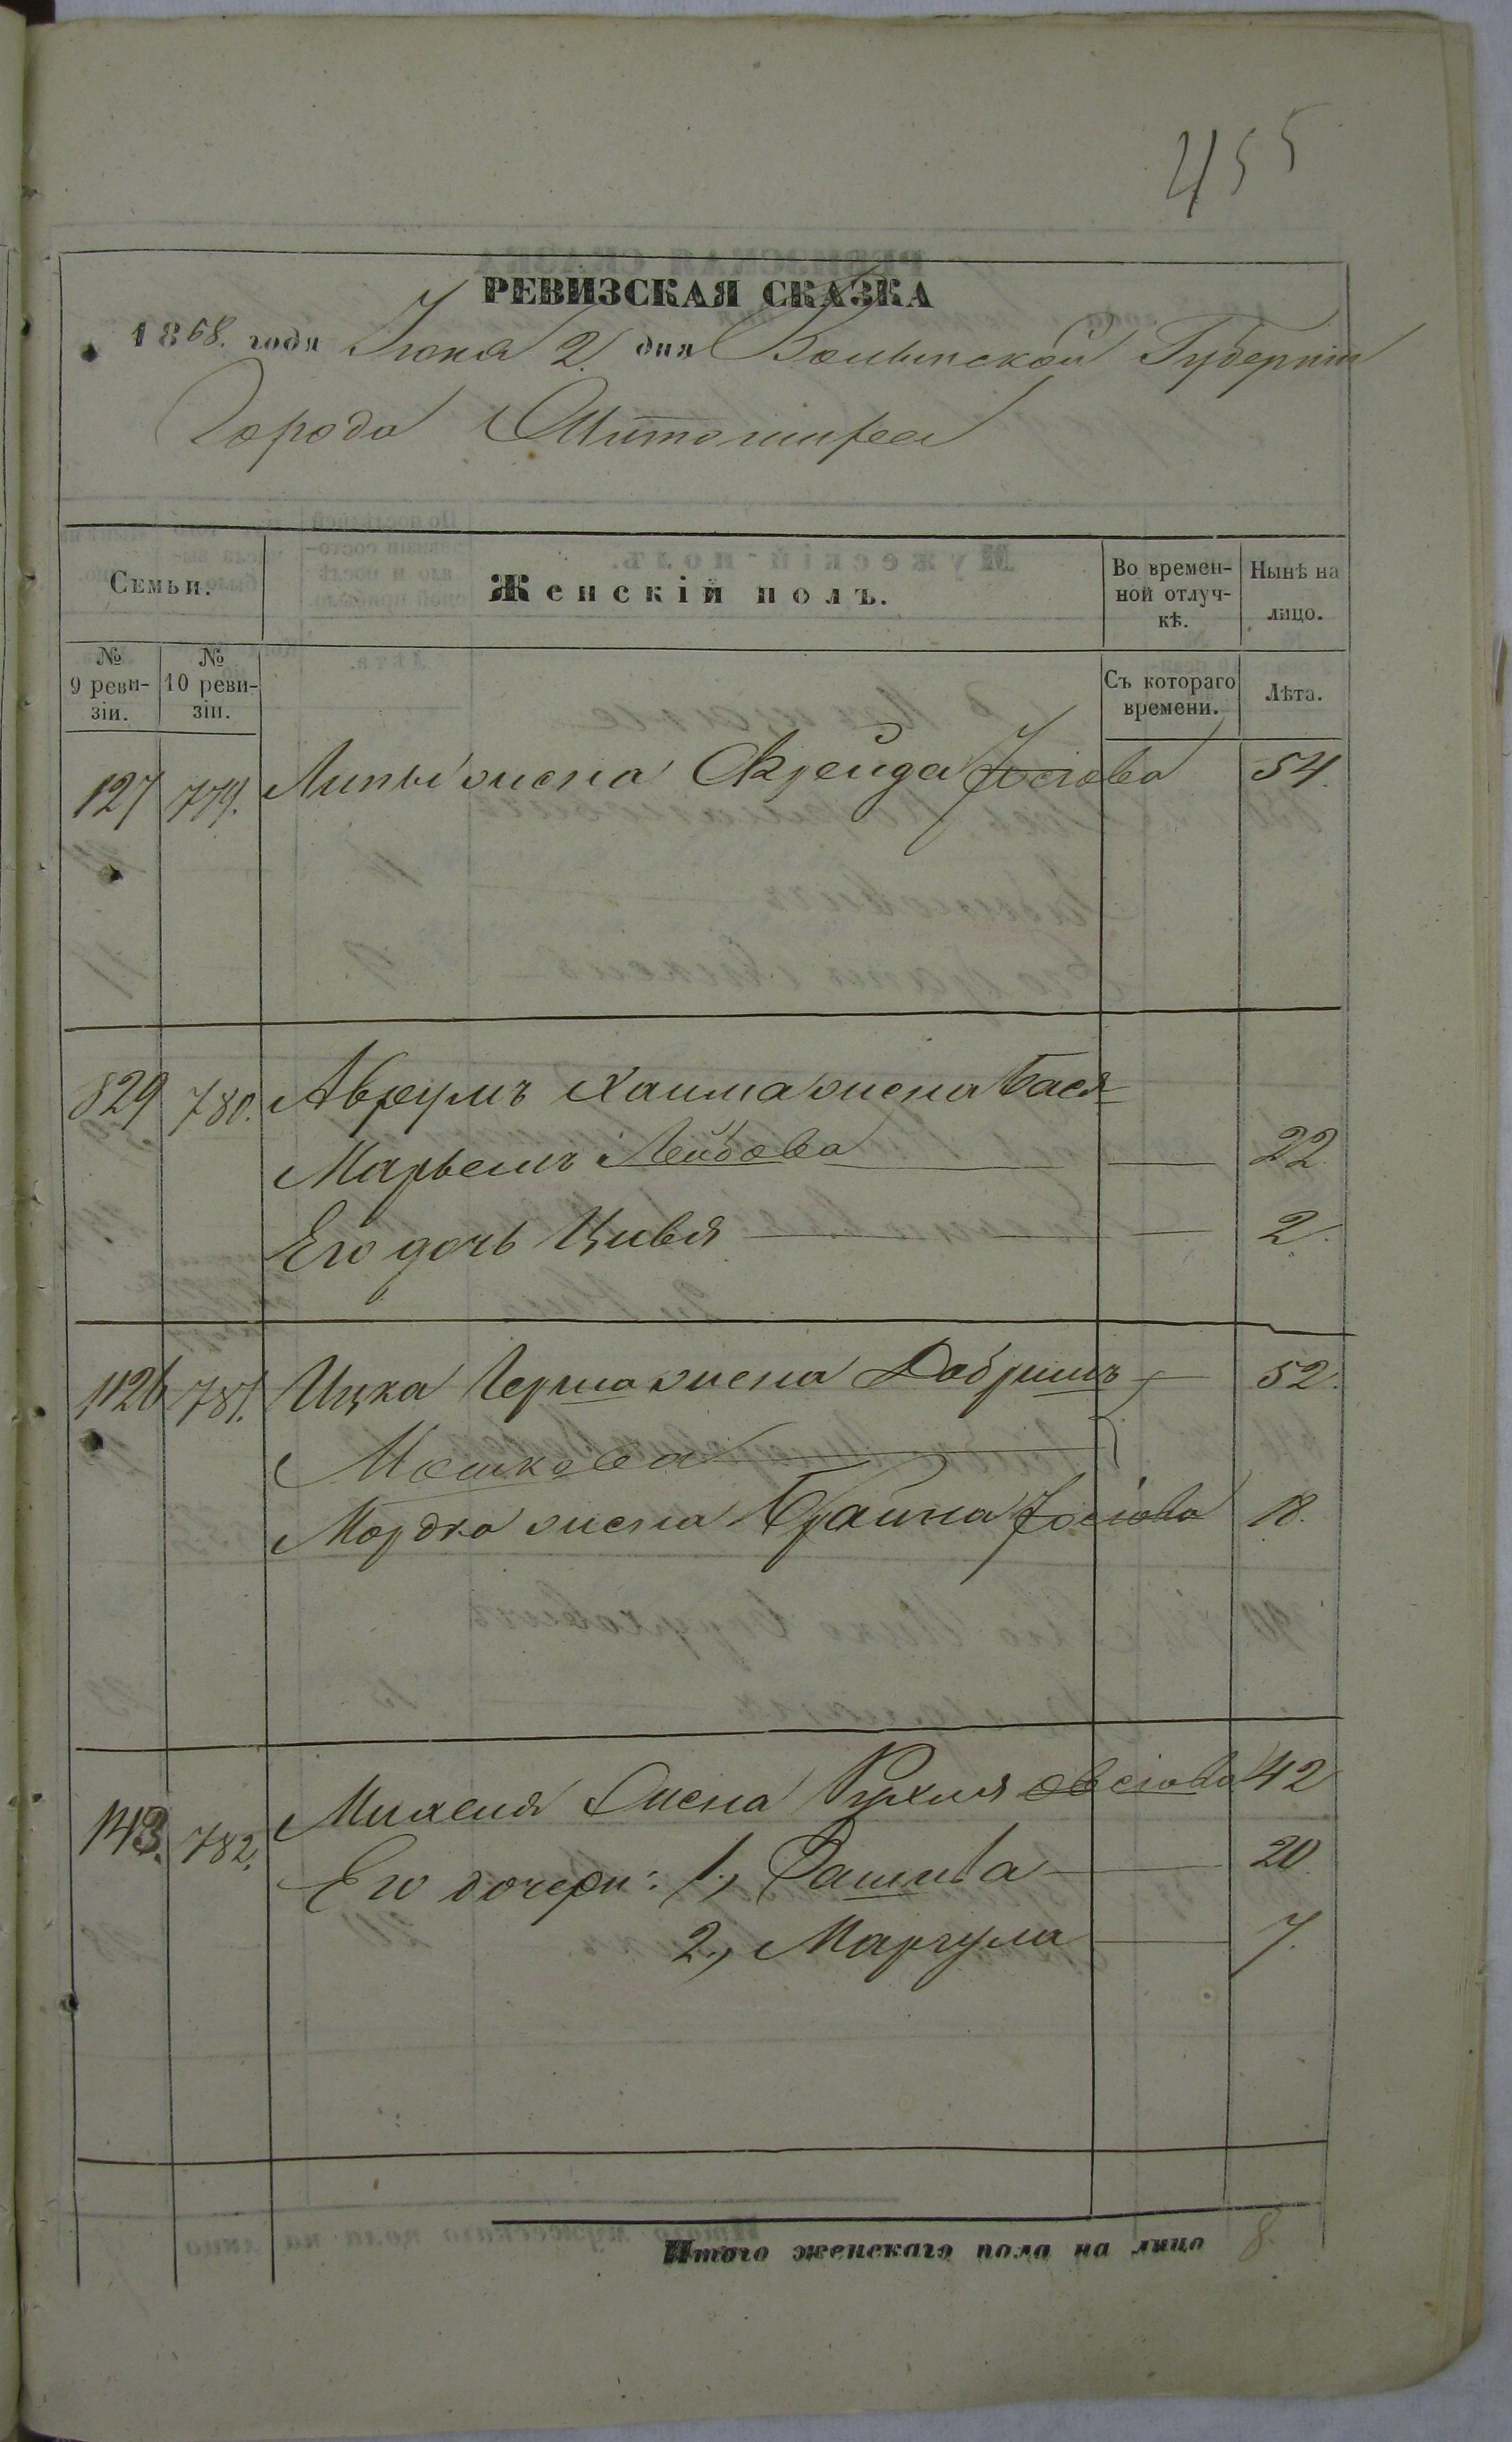 455
РЕВИЗСКАЯ СКАЗКА
1868. года Іюня 2. дня Волынской Губерніи
Города Житоміра
Семьи.
Женскій полъ.
Во временной отлучкѣ.
Нынѣ на лицо.
№ 9 ревизіи.
№ 10 ревизіи.
Съ котораго времени.
Лѣта.
127 779. Липы жена Фрейда Іосіова 54.
829 780. Аврумъ Хаима жена Бася
Марьемъ Лейбова 22
Его дочь Цивья 2.
1126 781. Ицка Герша жена Добришъ 52.
Мошкова
Мордка жена Брайна Іосіова 18.
143. 782. Михеля Жена Рухля Овсіова 42
Его дочери: 1., Рашива 20
2., Маргула 7.
Итого женскаго пола на лицо 8.